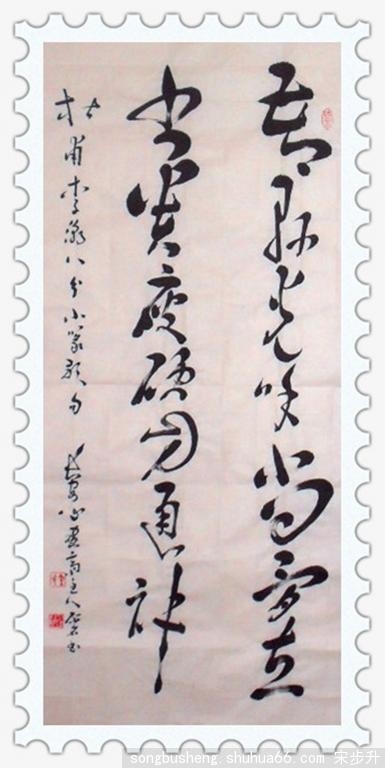 苦縣光和尚骨立
書貴瘦硬方通神
杜甫李潮八分小篆歌句
心畫齋主人
songbusheng.shuhua66.com 宋步升